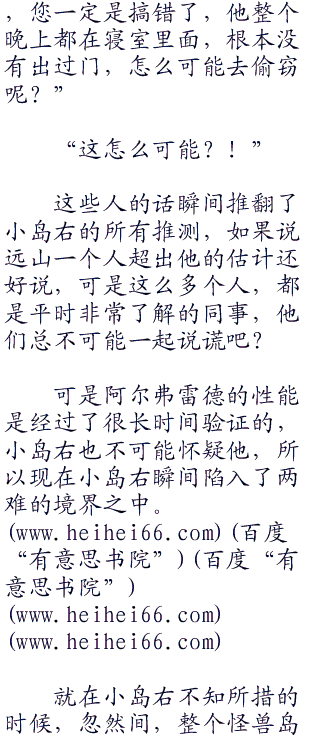 ，您一定是搞错了，他整个
晚上都在寝室里面，根本没
有出过门，怎么可能去偷窃
呢？”
“这怎么可能？！”
这些人的话瞬间推翻了
小岛右的所有推测，如果说
远山一个人超出他的估计还
好说，可是这么多个人，都
是平时非常了解的同事，他
们总不可能一起说谎吧？
可是阿尔弗雷德的性能
是经过了很长时间验证的，
小岛右也不可能怀疑他，所
以现在小岛右瞬间陷入了两
难的境界之中。
(www.heihei66.com)(百度
“有意思书院”)(百度“有
意思书院”)
(www.heihei66.com)
(www.heihei66.com)
就在小岛右不知所措的
时候，忽然间，整个怪兽岛